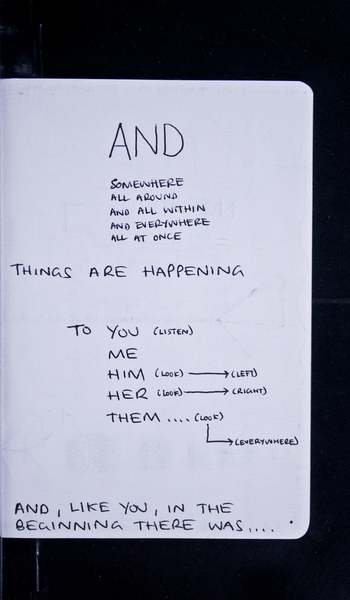 AND
SOMEWHERE
ALL AROUND
AND ALL WITHIN
AND EVERYWHERE
ALL AT ONCE
THINGS ARE HAPPENING
TO YOU (LISTEN)
ME
HIM (LOOK) → (LEFT)
HER (LOOK) → (RIGHT)
THEM .... (LOOK)
→ (EVERYWHERE)
AND, LIKE YOU, IN THE
BEGINNING THERE WAS....